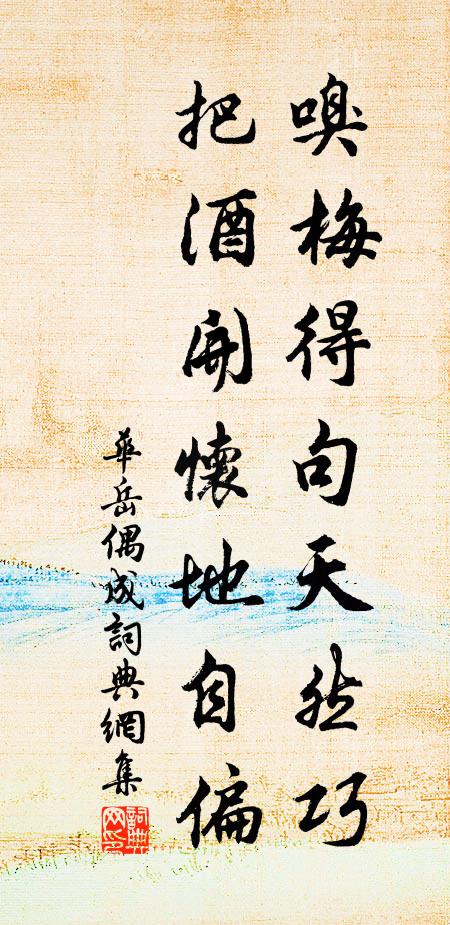 嗅梅得句天然巧
把酒開懷地自偏
華岳偶成詞典網集
詞典網印